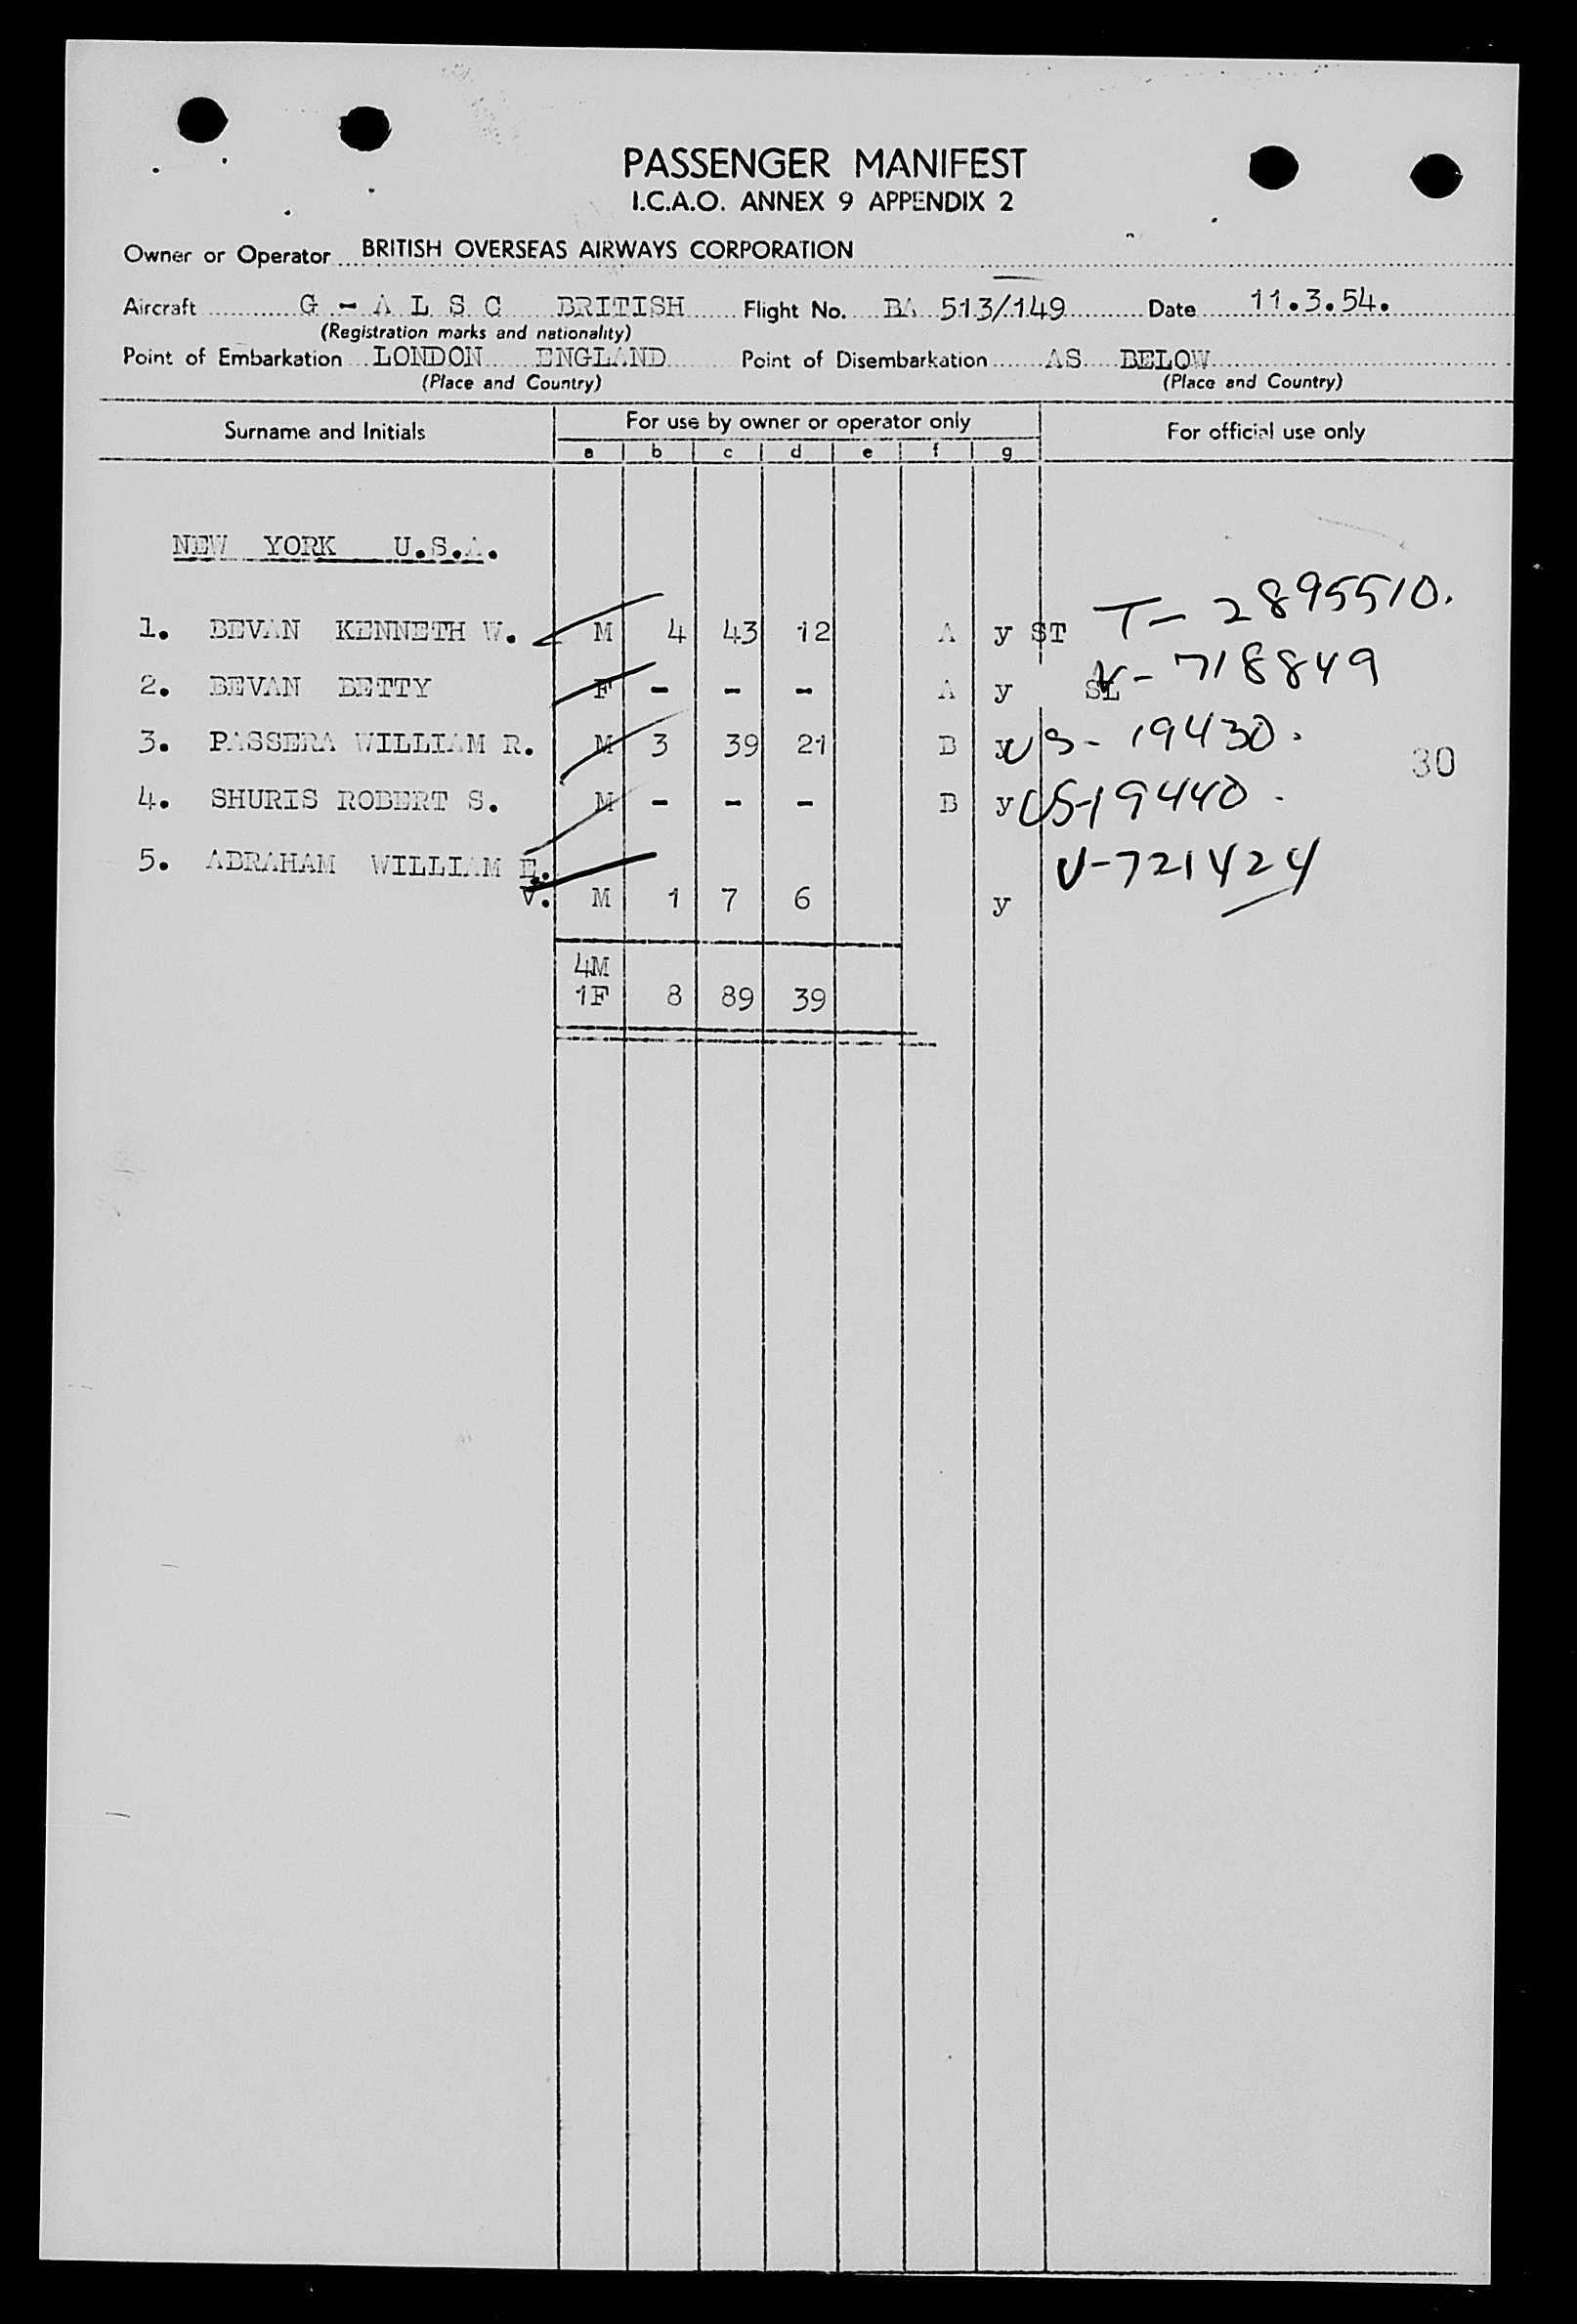 PASSENGER MANIFEST
I.C.A.O. ANNEX 9 APPENDIX 2
Owner or Operator BRITISH OVERSEAS AIRWAYS CORPORATION
Aircraft G - A L S C BRITISH Flight No. BA 513/149 Date 11.3.54.
(Registration marks and nationality)
Point of Embarkation LONDON ENGLAND Point of Disembarkation AS BELOW
(Place and Country) (Place and Country)
Surname and Initials For use by owner or operator only For official use only
a b c d e f g
NEW YORK U.S.A.
1. BEVAN KENNETH W. M 4 43 12 A y ST T- 2895510.
2. BEVAN BETTY F - - - A y SL V- 718849
3. PASSERA WILLIAM R. M 3 39 21 B y US- 19430. 30
4. SHURIS ROBERT S. M - - - B y US-19440.
5. ABRAHAM WILLIAM E. V-721424
V. M 1 7 6 y
4M
1F 8 89 39